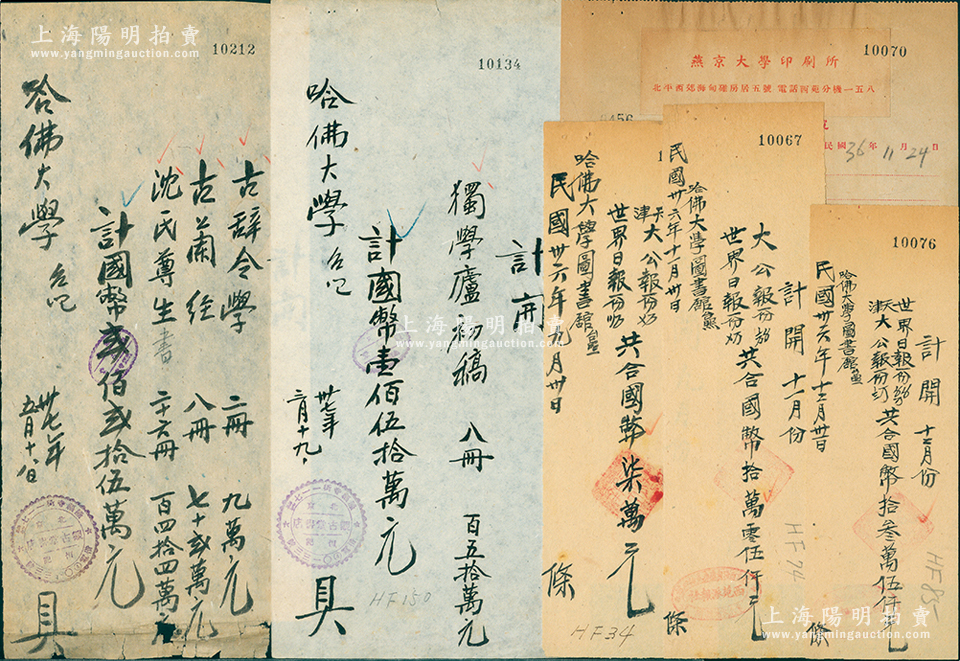 上海陽明拍賣
www.yangmingauction.com
10212
古辞令學 二冊 九萬元
古蘭経 八冊 七十貳萬元
沈氏尊生書 二十六冊 百四拾四萬元
計國幣貳佰貳拾伍萬元
哈佛大學
卅七年
五月十八日
具
10134
計開
獨學廬初稿 八冊 百五拾萬元
計國幣壹佰伍拾萬元
哈佛大學
卅七年
二月十九日
具
HF150
10070
燕京大學印刷所
北平西郊海甸碓房居五號 電話西苑分機一五八
民國36年11月24日
世界日報
大公報
共合國幣柒萬元
哈佛大學圖書館
民國卅六年九月卅日
條
HF34
10067
計開 十一月份
大公報
世界日報
共合國幣拾萬零伍仟元
哈佛大學圖書館
民國卅六年十一月卅日
條
HF74
10076
計開 十二月份
世界日報
大公報
共合國幣拾叁萬伍仟元
哈佛大學圖書館
民國卅六年十二月卅日
條
HF85
上海陽明拍賣
www.yangmingauction.com
上海陽明拍賣
www.yangmingauction.com